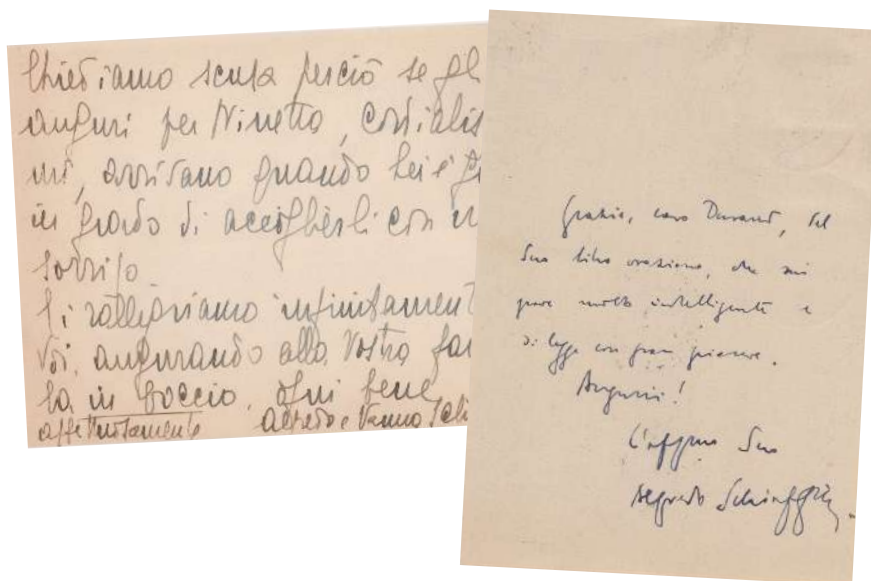 Chiediamo scusa perciò se gl
auguri per Ninetto, cordialis
mi, arrivano quando Lei è
in grado di accoglierli con
sorriso
Ci rallegriamo infinitament
Voi, augurando alla Vostra fa
in boccio, ogni bene
affettuosamente Alfredo e Vanna Schi
Grazie, caro Durand, del
Suo libro oraziano, che mi
pare molto intelligente e
si legge con gran piacere.
Auguri!
L'aff.mo Suo
Alfredo Schiaffini